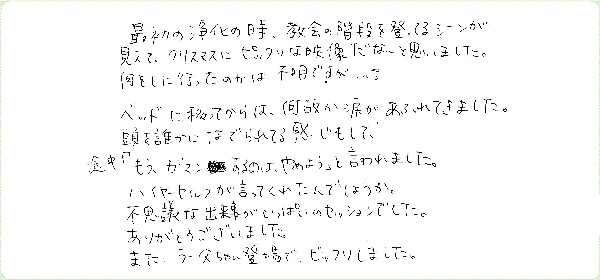 最初の浄化の時、教会の階段を登ってるシーンが
見えて、クリスマスにピッタリな映像だな〜と思いました。
何をしに行ったのかは不明ですが…。
ベッドに移ってからは、何故か涙があふれてきました。
頭を誰かになでられてる感じもして、
途中「もう、ガマンするのは、やめよう」と言われました。
ハイヤーセルフが言ってくれたんでしょうか。
不思議な出来事がいっぱいのセッションでした。
ありがとうございました。
また、父ちゃん登場で、ビックリしました。